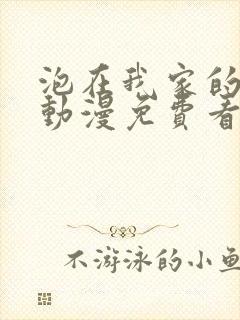 泡在我家的
動漫免費看
不游泳的小魚